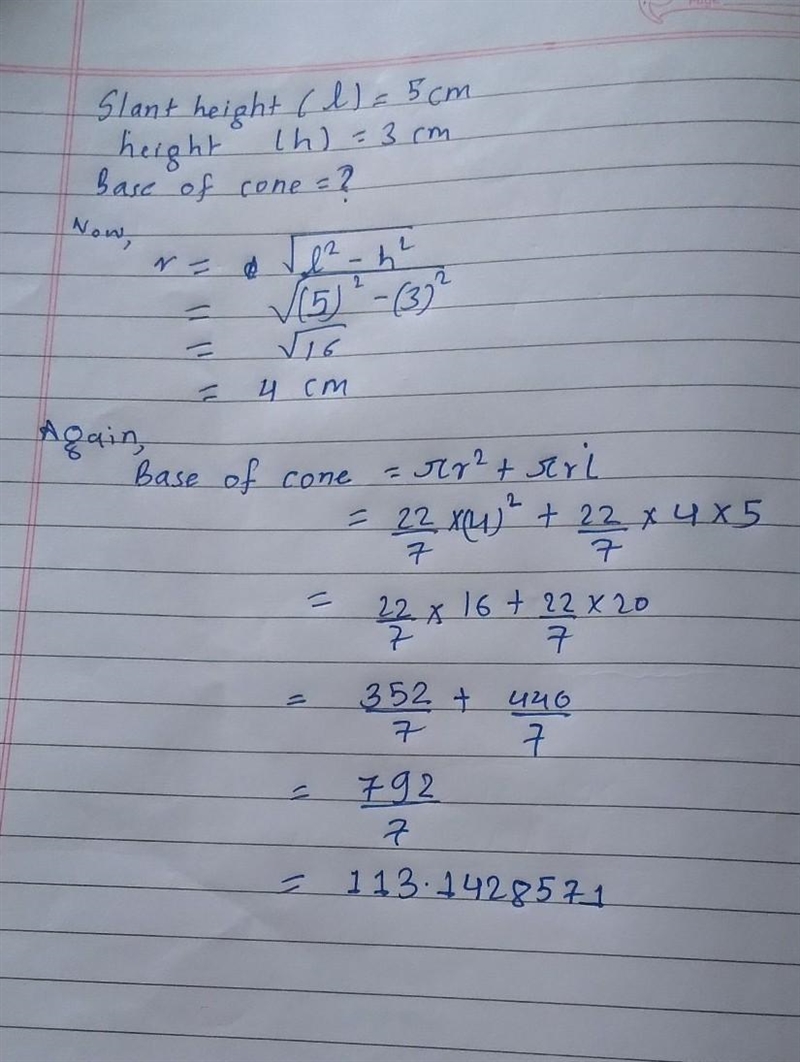 Slant height (l) = 5 cm
height (h) = 3 cm
Base of cone = ?
Now,
r = √l² - h²
= √(5)² - (3)²
= √16
= 4 cm
Again,
Base of cone = πr² + πrl
= 22/7 ×(4)² + 22/7 × 4 × 5
= 22/7 × 16 + 22/7 × 20
= 352/7 + 440/7
= 792/7
= 113.1428571